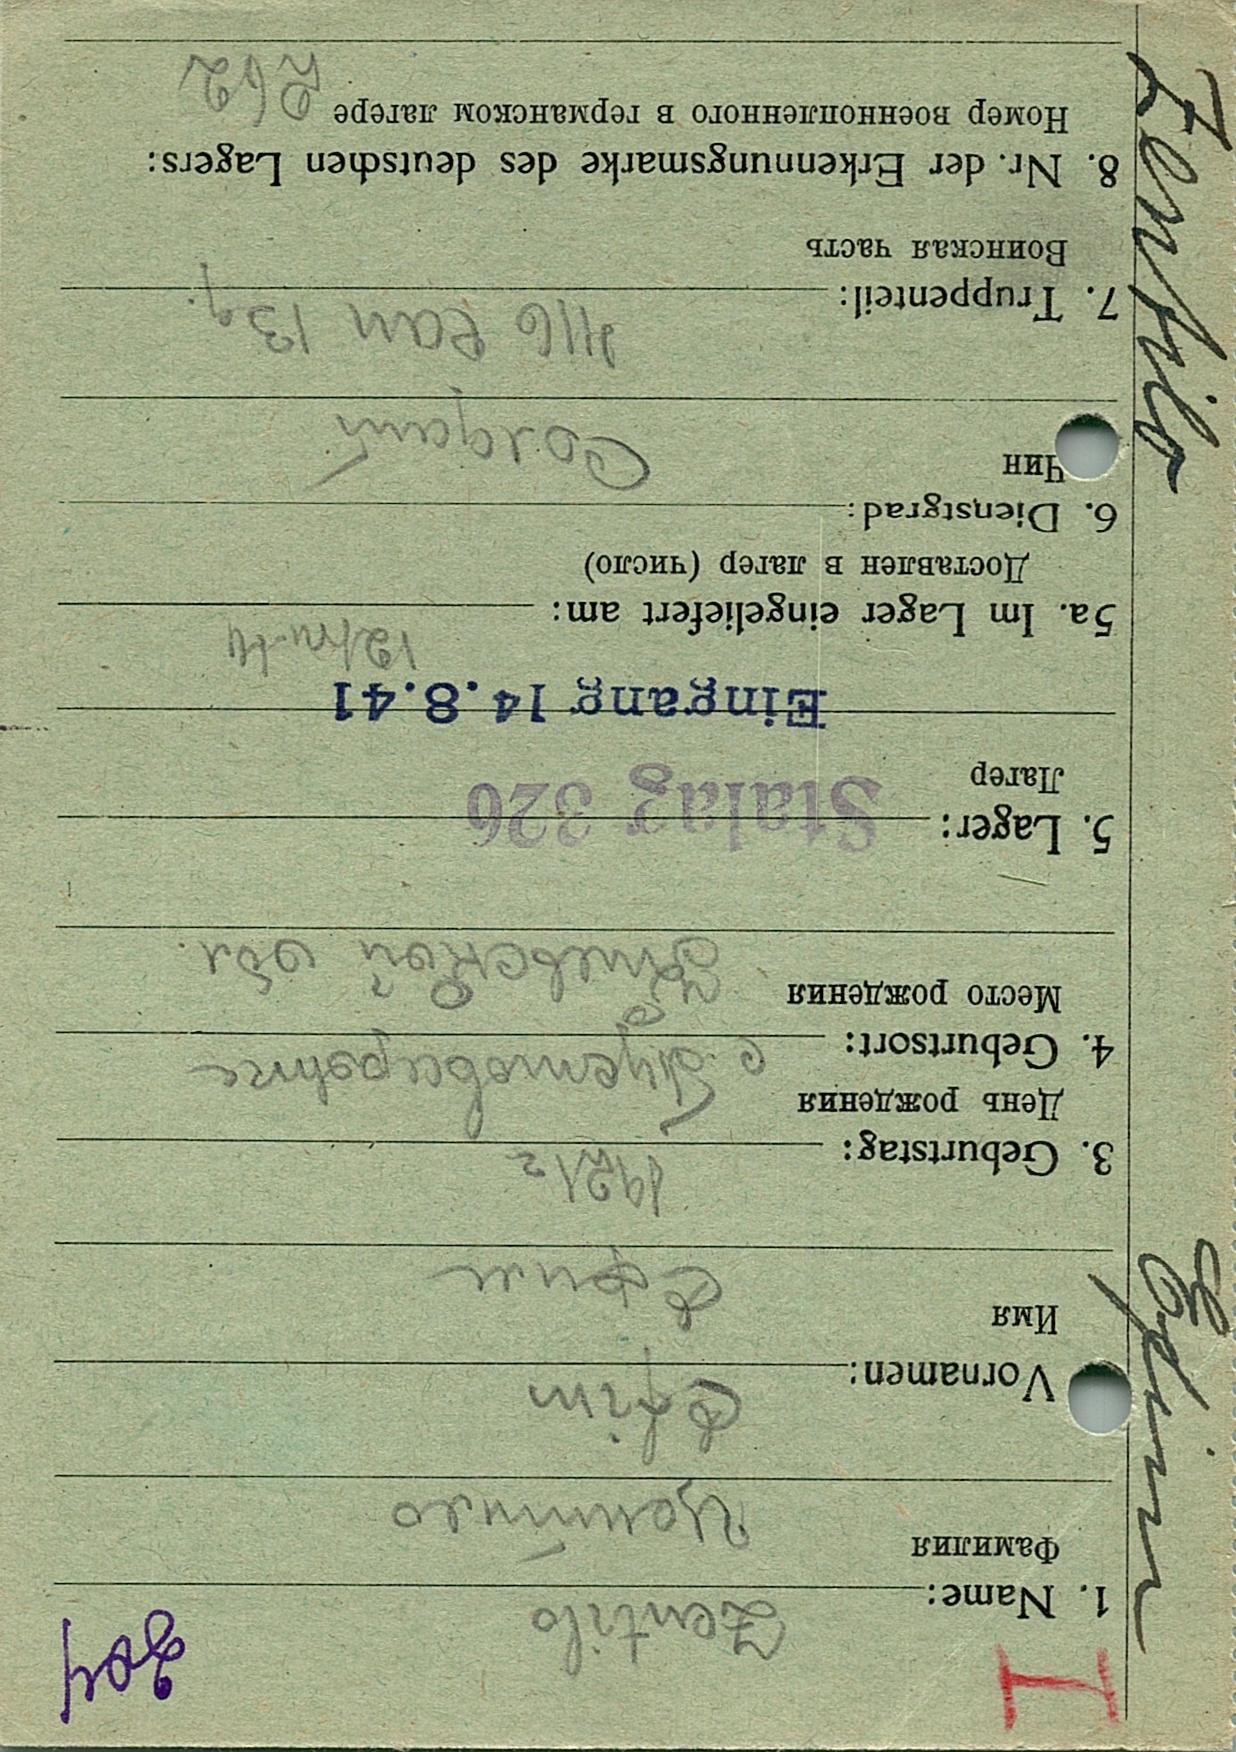 I
204
1. Name: Zentilo
Фамилия Центило
Vornamen: Efim
Имя Ефим
3. Geburtstag: 1921 г
День рождения
4. Geburtsort: с.
Место рождения Киевской обл.
5. Lager: Stalag 326
Лагер
Eingang 14.8.41
5a. Im Lager eingeliefert am:
Доставлен в лагер (число)
6. Dienstgrad:
Чин Солдат
7. Truppenteil:
Воинская часть
8. Nr. der Erkennungsmarke des deutschen Lagers:
Номер военнопленного в германском лагере
Zentilo Efim